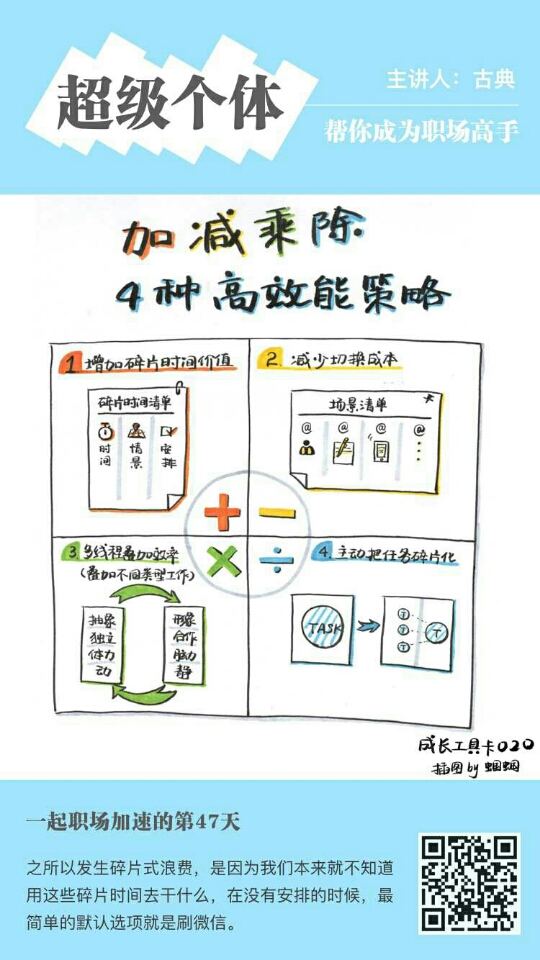 超级个体
主讲人：古典
帮你成为职场高手
加减乘除
4种高效能策略
1 增加碎片时间价值
碎片时间清单
时间 情景 安排
2. 减少切换成本
场景清单
@ @ @ @
3 多线程叠加效率
(叠加不同类型工作)
抽象
独立
体力
动
形象
合作
脑力
静
+ −
× ÷
4. 主动把任务碎片化
TASK
T
T
T
T
成长工具卡020
插图by蝈蝈
一起职场加速的第47天
之所以发生碎片式浪费，是因为我们本来就不知道
用这些碎片时间去干什么，在没有安排的时候，最
简单的默认选项就是刷微信。